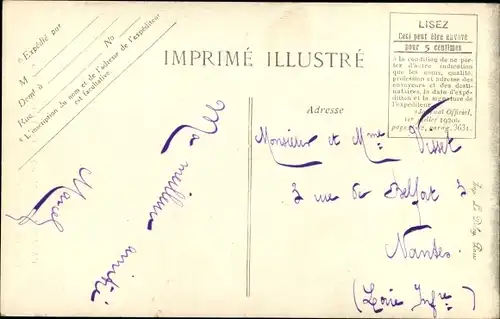 * Expédié par
M
No
Demt à
Rue
* L'inscription du nom et de l'adresse de l'expéditeur
est facultative.
IMPRIMÉ ILLUSTRÉ
LISEZ
Ceci peut être envoyé
pour 5 centimes
à la condition de ne porter
d'autre indication
que les noms, qualité,
profession et adresse des
envoyeurs et des destinataires,
la date d'expédition
et la signature de
l'expéditeur.
(Journal Officiel,
1er 1920,
parag. 363).
Adresse
Monsieur et Mme Visset
2 rue de Belfort à
Nantes
(Loire Infre)
Ma meilleure amitié
Marcel